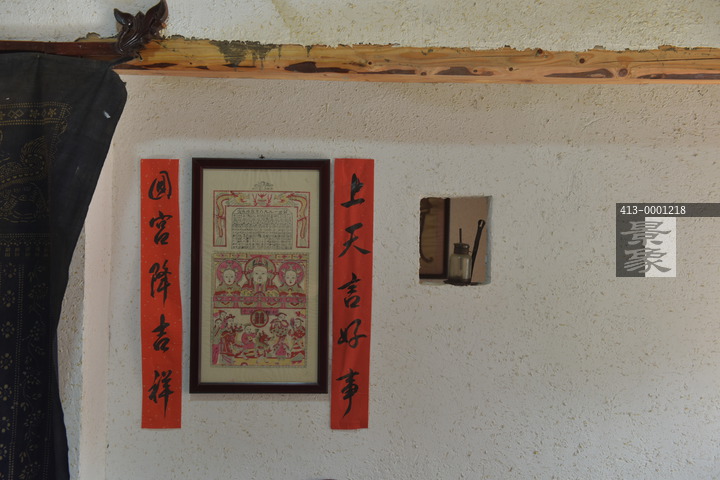 上天言好事
回宫降吉祥
413-0001218
景象